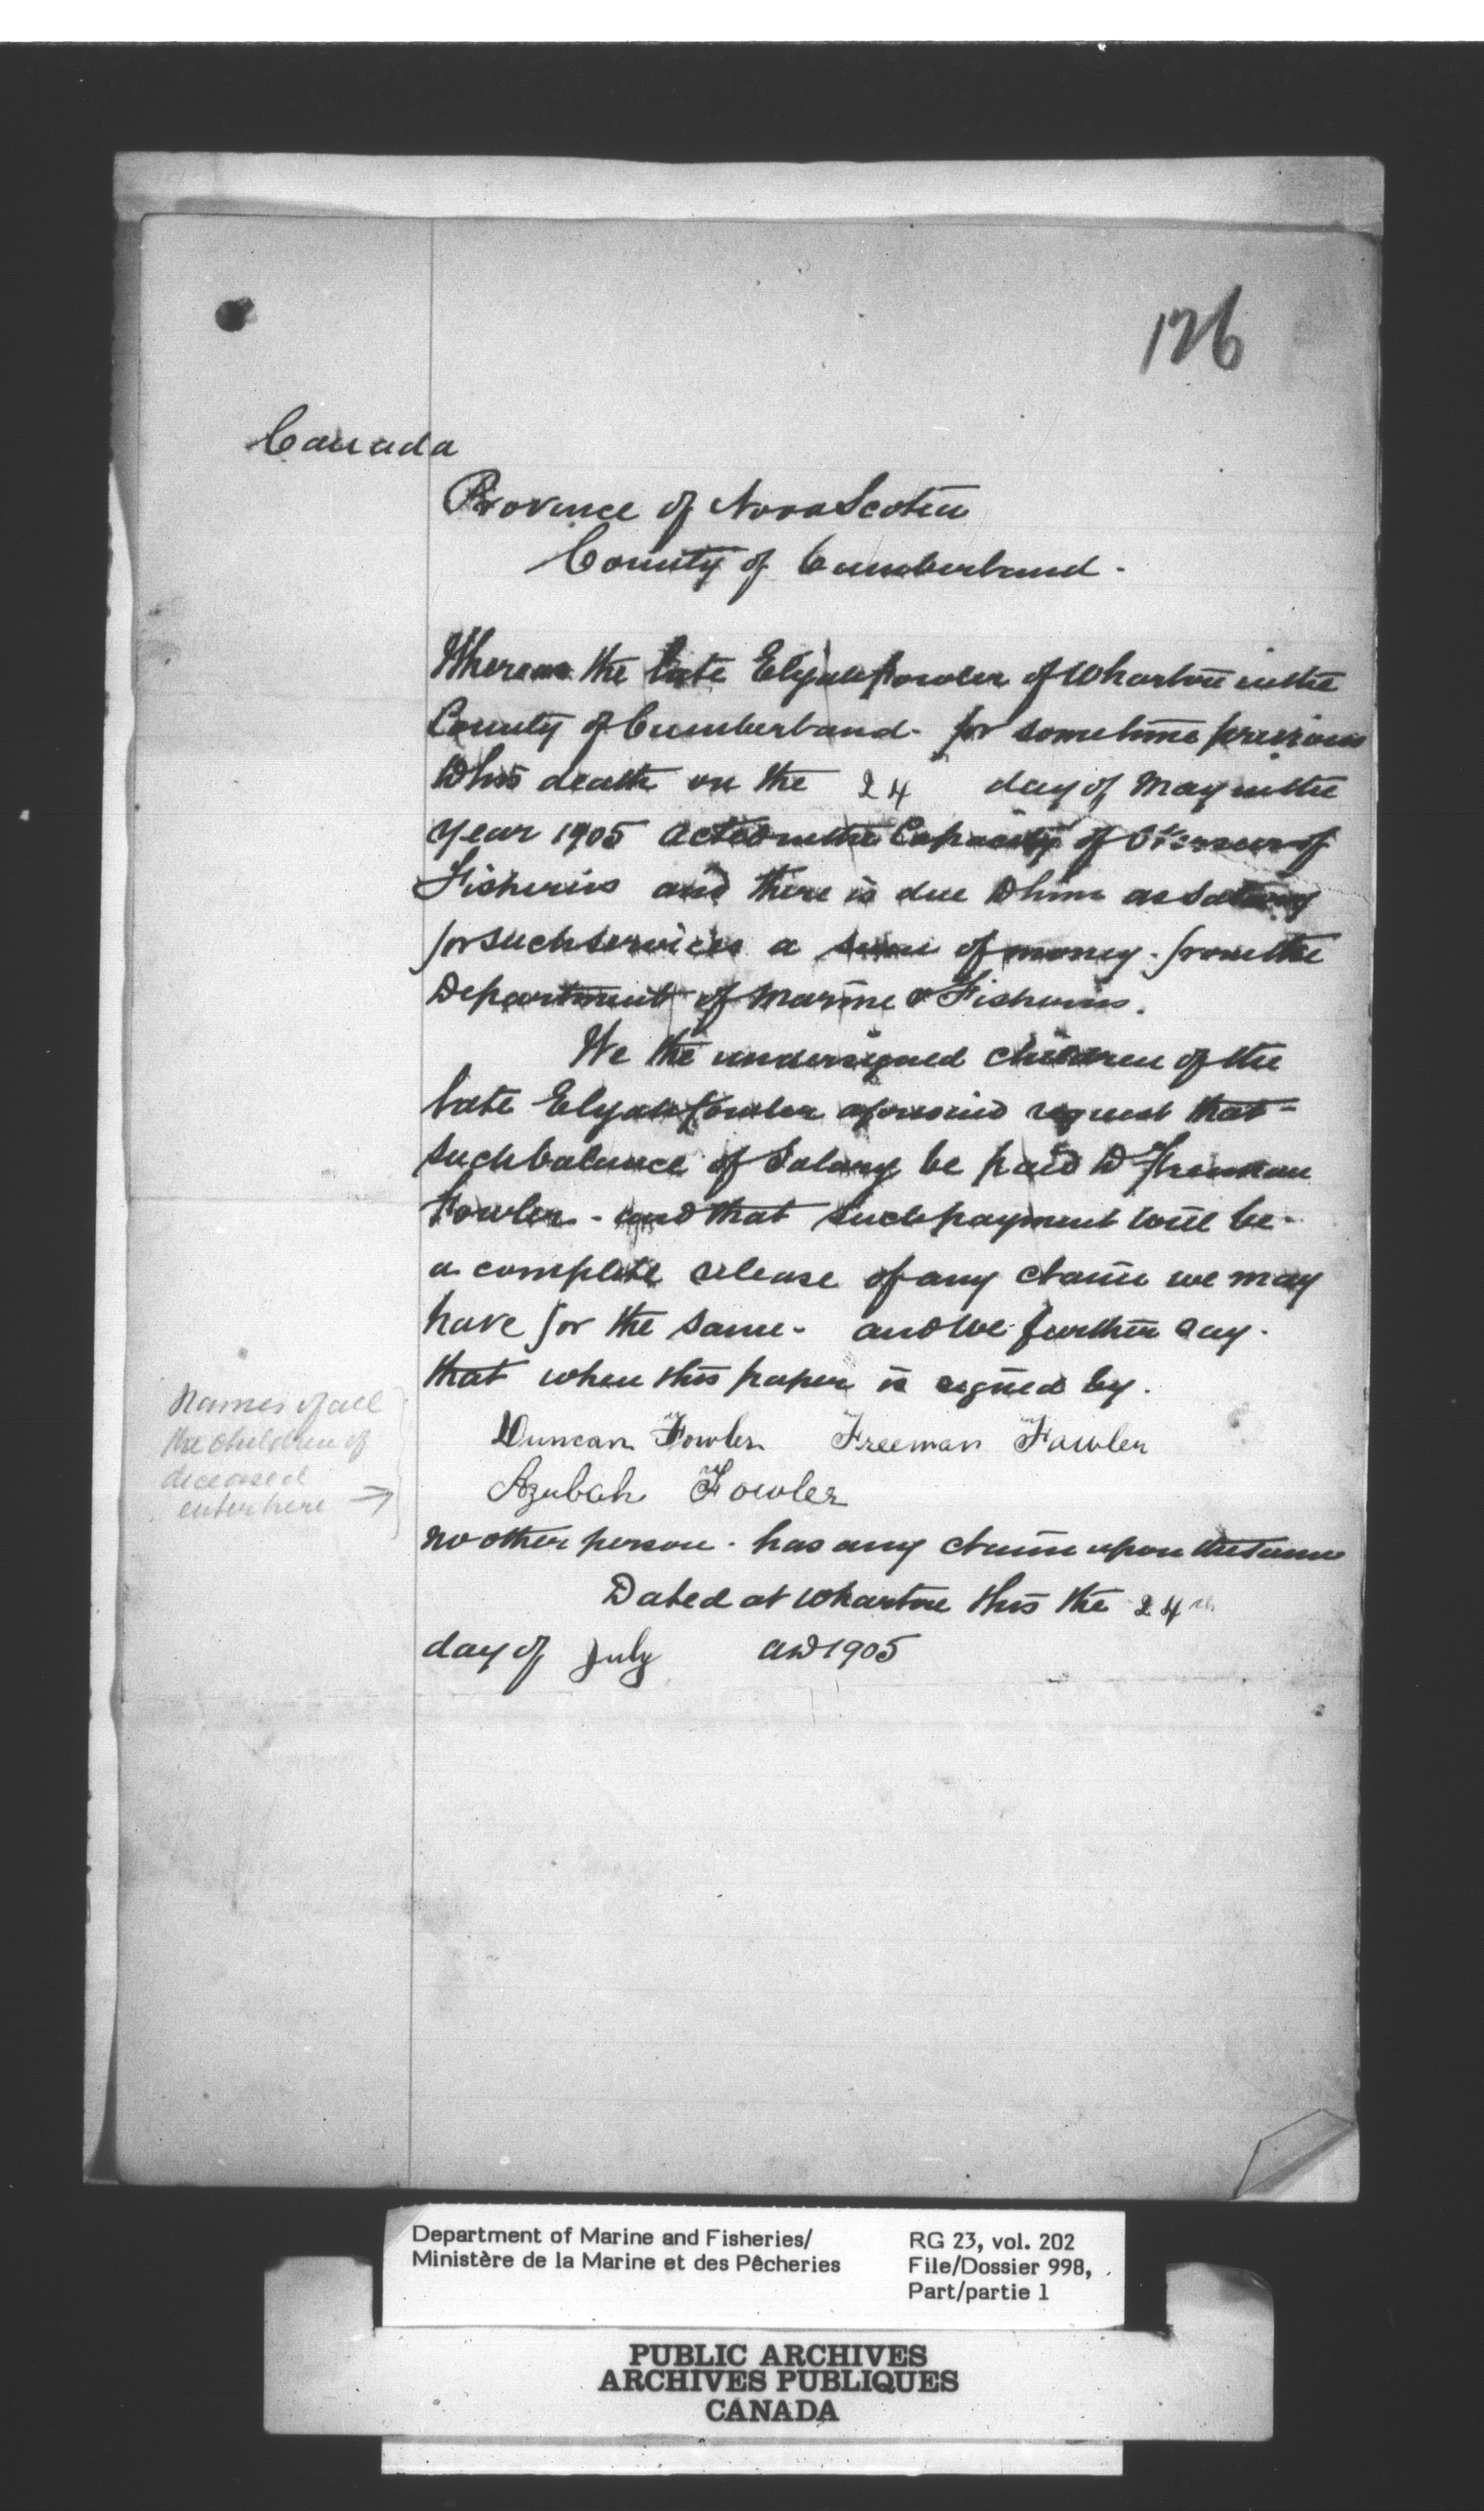 126
Canada
Province of Nova Scotia
County of Cumberland.
Whereas the late Elijah Fowler of Wharton in the
County of Cumberland. for sometime previous
to his death on the 24 day of May in the
year 1905 acted in the Capacity of Overseer of
Fisheries and there is due to him as salary
for such services a sum of money. from the
Department of Marine & Fisheries.
We the undersigned children of the
late Elijah Fowler aforesaid request that
such balance of Salary be paid to Freeman
Fowler - and that such payment will be
a complete release of any claim we may
have for the same. and we further say.
that when this paper is signed by.
Names of all
the children of
deceased
enter here →
Duncan Fowler Freeman Fowler
Azubah Fowler
no other person. has any claim upon the same
Dated at Wharton this the 24th
day of July AD 1905
Department of Marine and Fisheries/
Ministère de la Marine et des Pêcheries
RG 23, vol. 202
File/Dossier 998,
Part/partie 1
PUBLIC ARCHIVES
ARCHIVES PUBLIQUES
CANADA